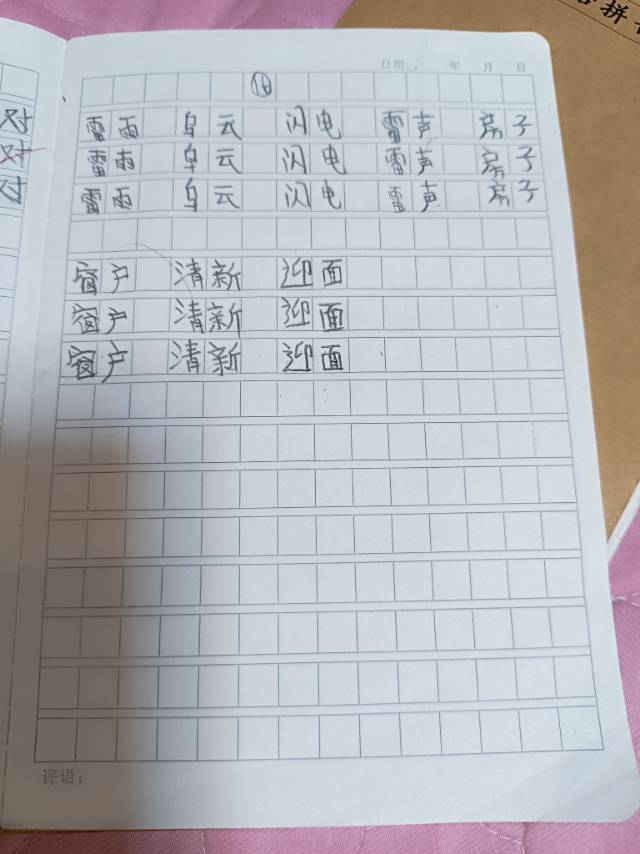 日期: 年 月 日
16
雷雨 乌云 闪电 雷声 房子
雷雨 乌云 闪电 雷声 房子
雷雨 乌云 闪电 雷声 房子
窗户 清新 迎面
窗户 清新 迎面
窗户 清新 迎面
评语:
对
对
对
拼